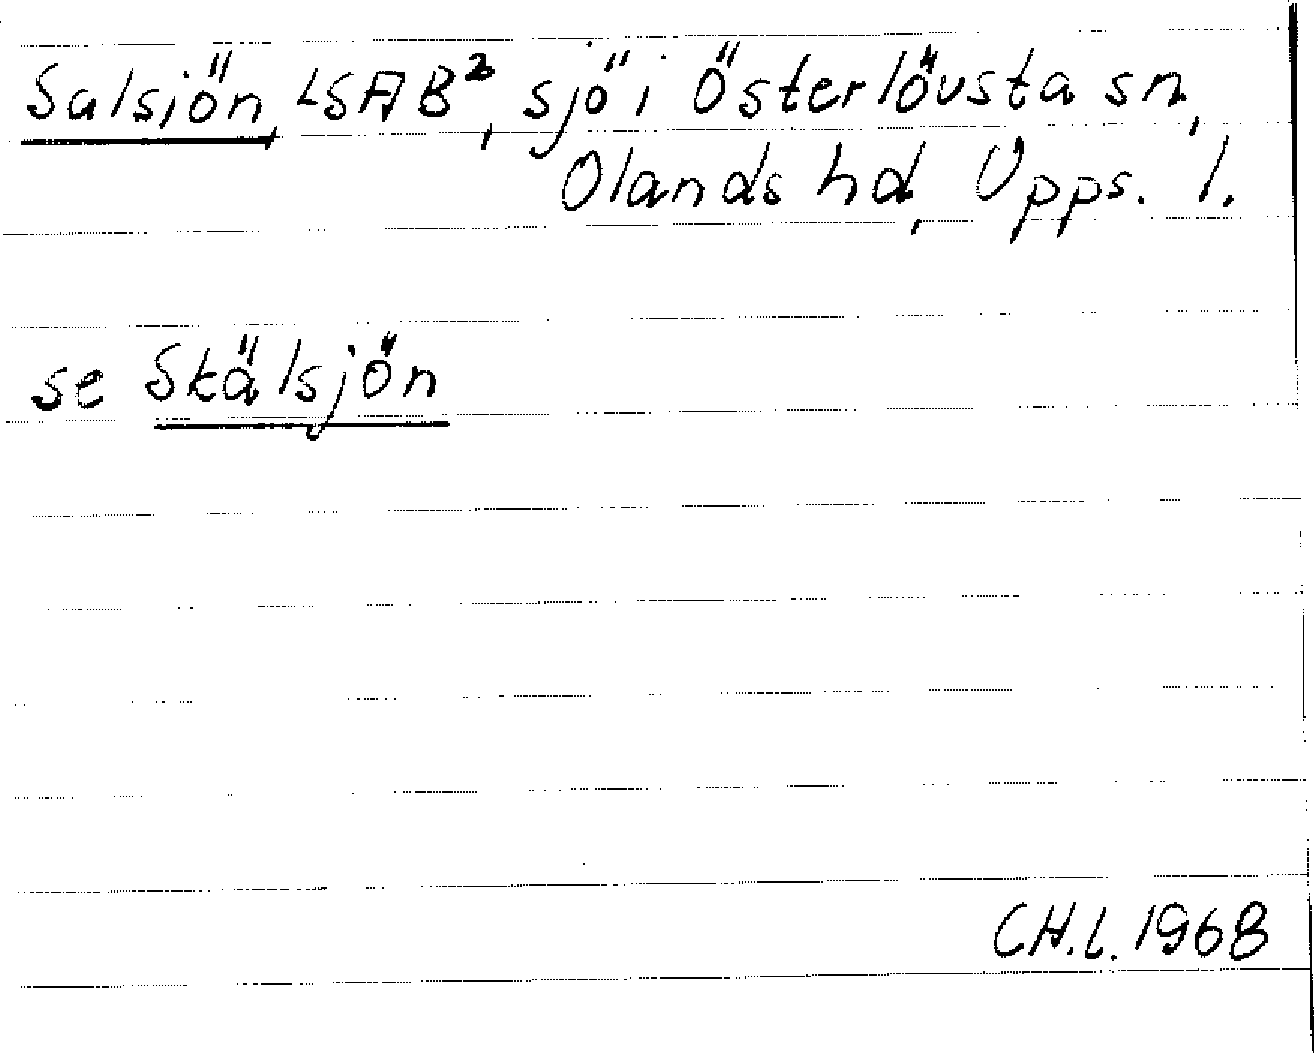 Salsjön, LSA B², sjö i Österlövsta sn,
Olands hd, Upps. l.
se Skälsjön
CH.L. 1968